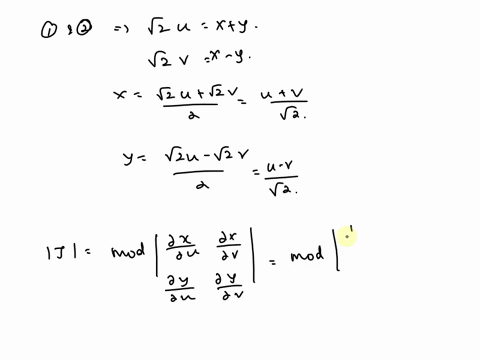 ① & ② ⇒ √2 u = x+y.
√2 v = x-y.
x = (√2 u + √2 v)/2 = (u+v)/√2.
y = (√2 u - √2 v)/2 = (u-v)/√2.
|J| = mod | ∂x/∂u ∂x/∂v | = mod |
∂y/∂u ∂y/∂v